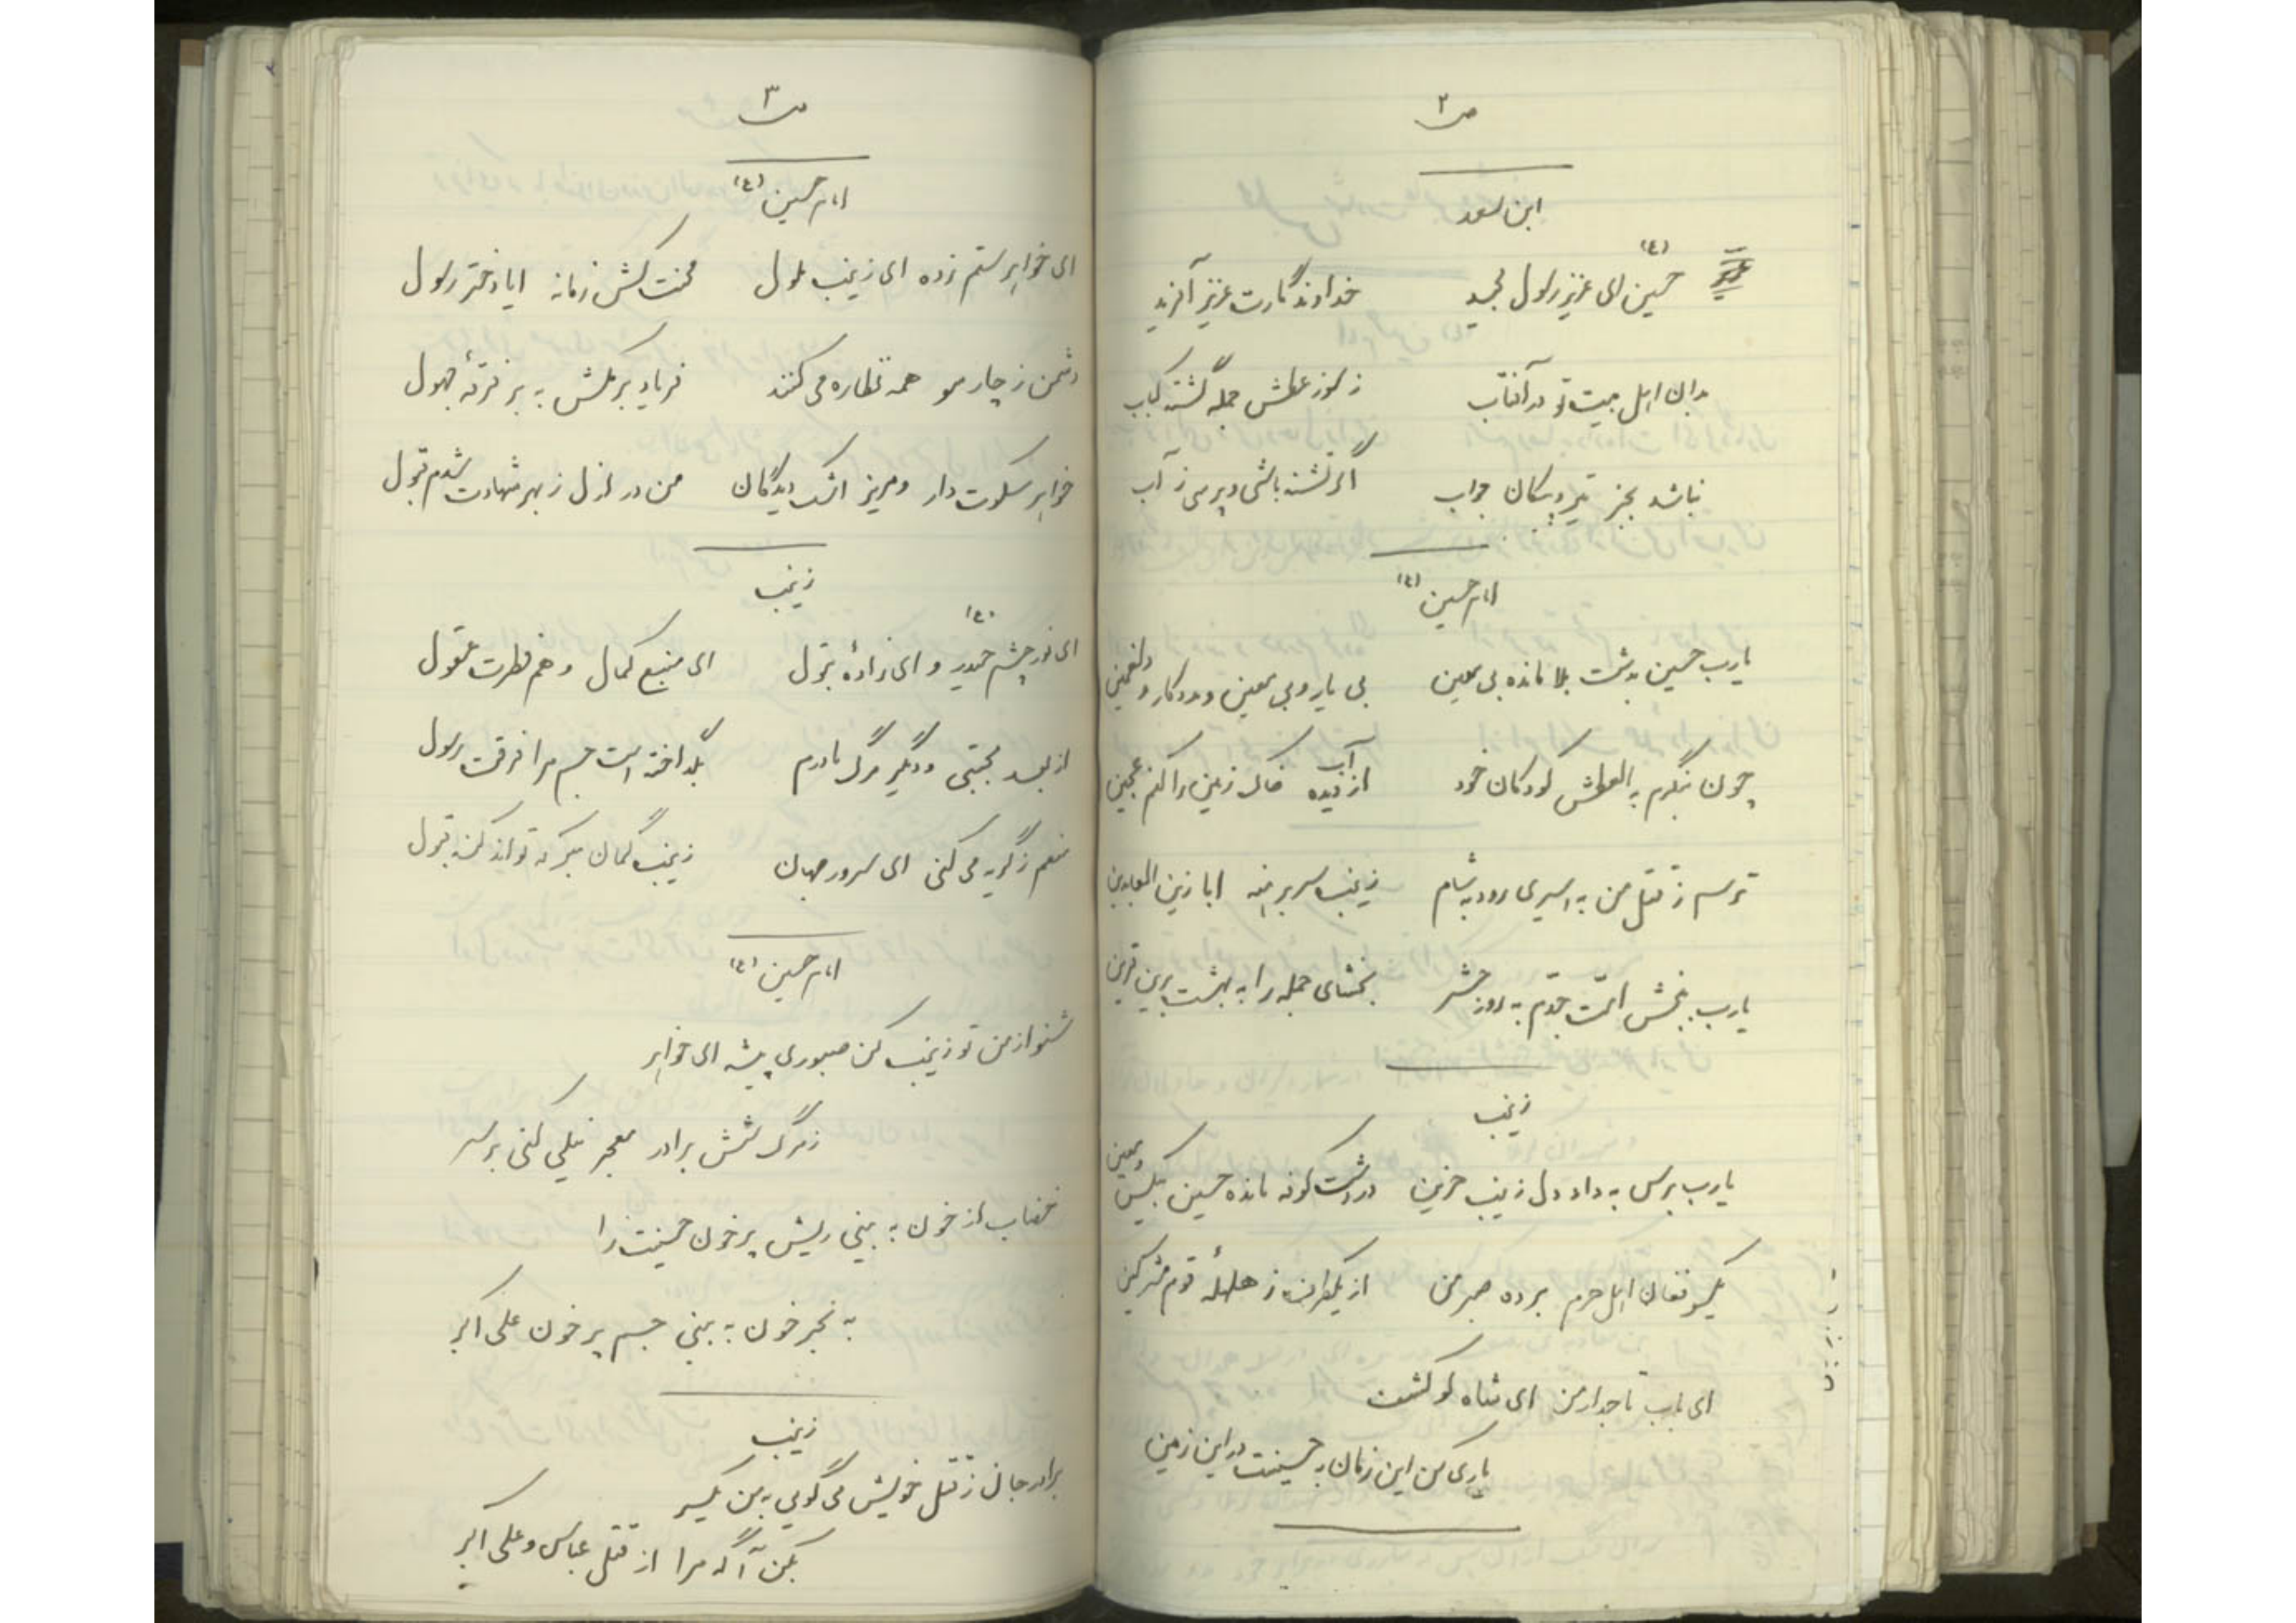 ص ۲
ابن سعد
حسین (ع) ای عزیز رسول مجید    خداوندگارت عزیز آفرید
بدان اهل بیت تو در آفتاب    ز سوز عطش جمله گشته کباب
نباشد بجز تیر و پیکان جواب    اگر تشنه باشی و پرسی ز آب
امام حسین (ع)
یارب حسین بدشت بلا مانده بی معین    بی یار و بی معین و مددکار و دلغمین
چون بنگرم به العطش کودکان خود    از آب دیده خاک زمین را کنم عجین
ترسم ز قتل من به اسیری رود به شام    زینب سر برهنه ابا زین العابدین
یارب ببخش امّت جدّم به روز حشر    بخشای جمله را به بهشت برین قرین
زینب
یارب برس به داد دل زینب حزین    در دشت کوفه مانده حسین بیکس و معین
یکسو فغان اهل حرم برده صبر من    از یکطرف ز هلهلهٔ قوم مشرکین
ای باب تاجدار من ای شاه لو کشف
یاری کن این زمان به حسینت در این زمین
ص ۳
امام حسین (ع)
ای خواهر ستم زده ای زینب ملول    محنت کش زمانه ایا دختر رسول
دشمن ز چار سو همه نظاره می کنند    فریاد برمکش به بر فرقهٔ جهول
خواهر سکوت دار و مریز اشک دیدگان    من در ازل ز بهر شهادت شدم قبول
زینب
ای نور چشم حیدر (ع) و ای زادهٔ بتول    ای منبع کمال و هم فطرت عقول
از بعد مجتبی و دیگر مرگ مادرم    بگداخته است جسم مرا فرقت رسول
منعم ز گریه می کنی ای سرور جهان    زینب گمان مبر که تواند کند قبول
امام حسین (ع)
شنو از من تو زینب کن صبوری پیشه ای خواهر
ز مرگ شش برادر معجر نیلی کنی بر سر
خضاب از خون به بینی ریش پر خون حسینت را
به بحر خون به بینی جسم پر خون علی اکبر
زینب
برادر جان ز قتل خویش می گویی به من یکسر
بکن آگه مرا از قتل عباس و علی اکبر